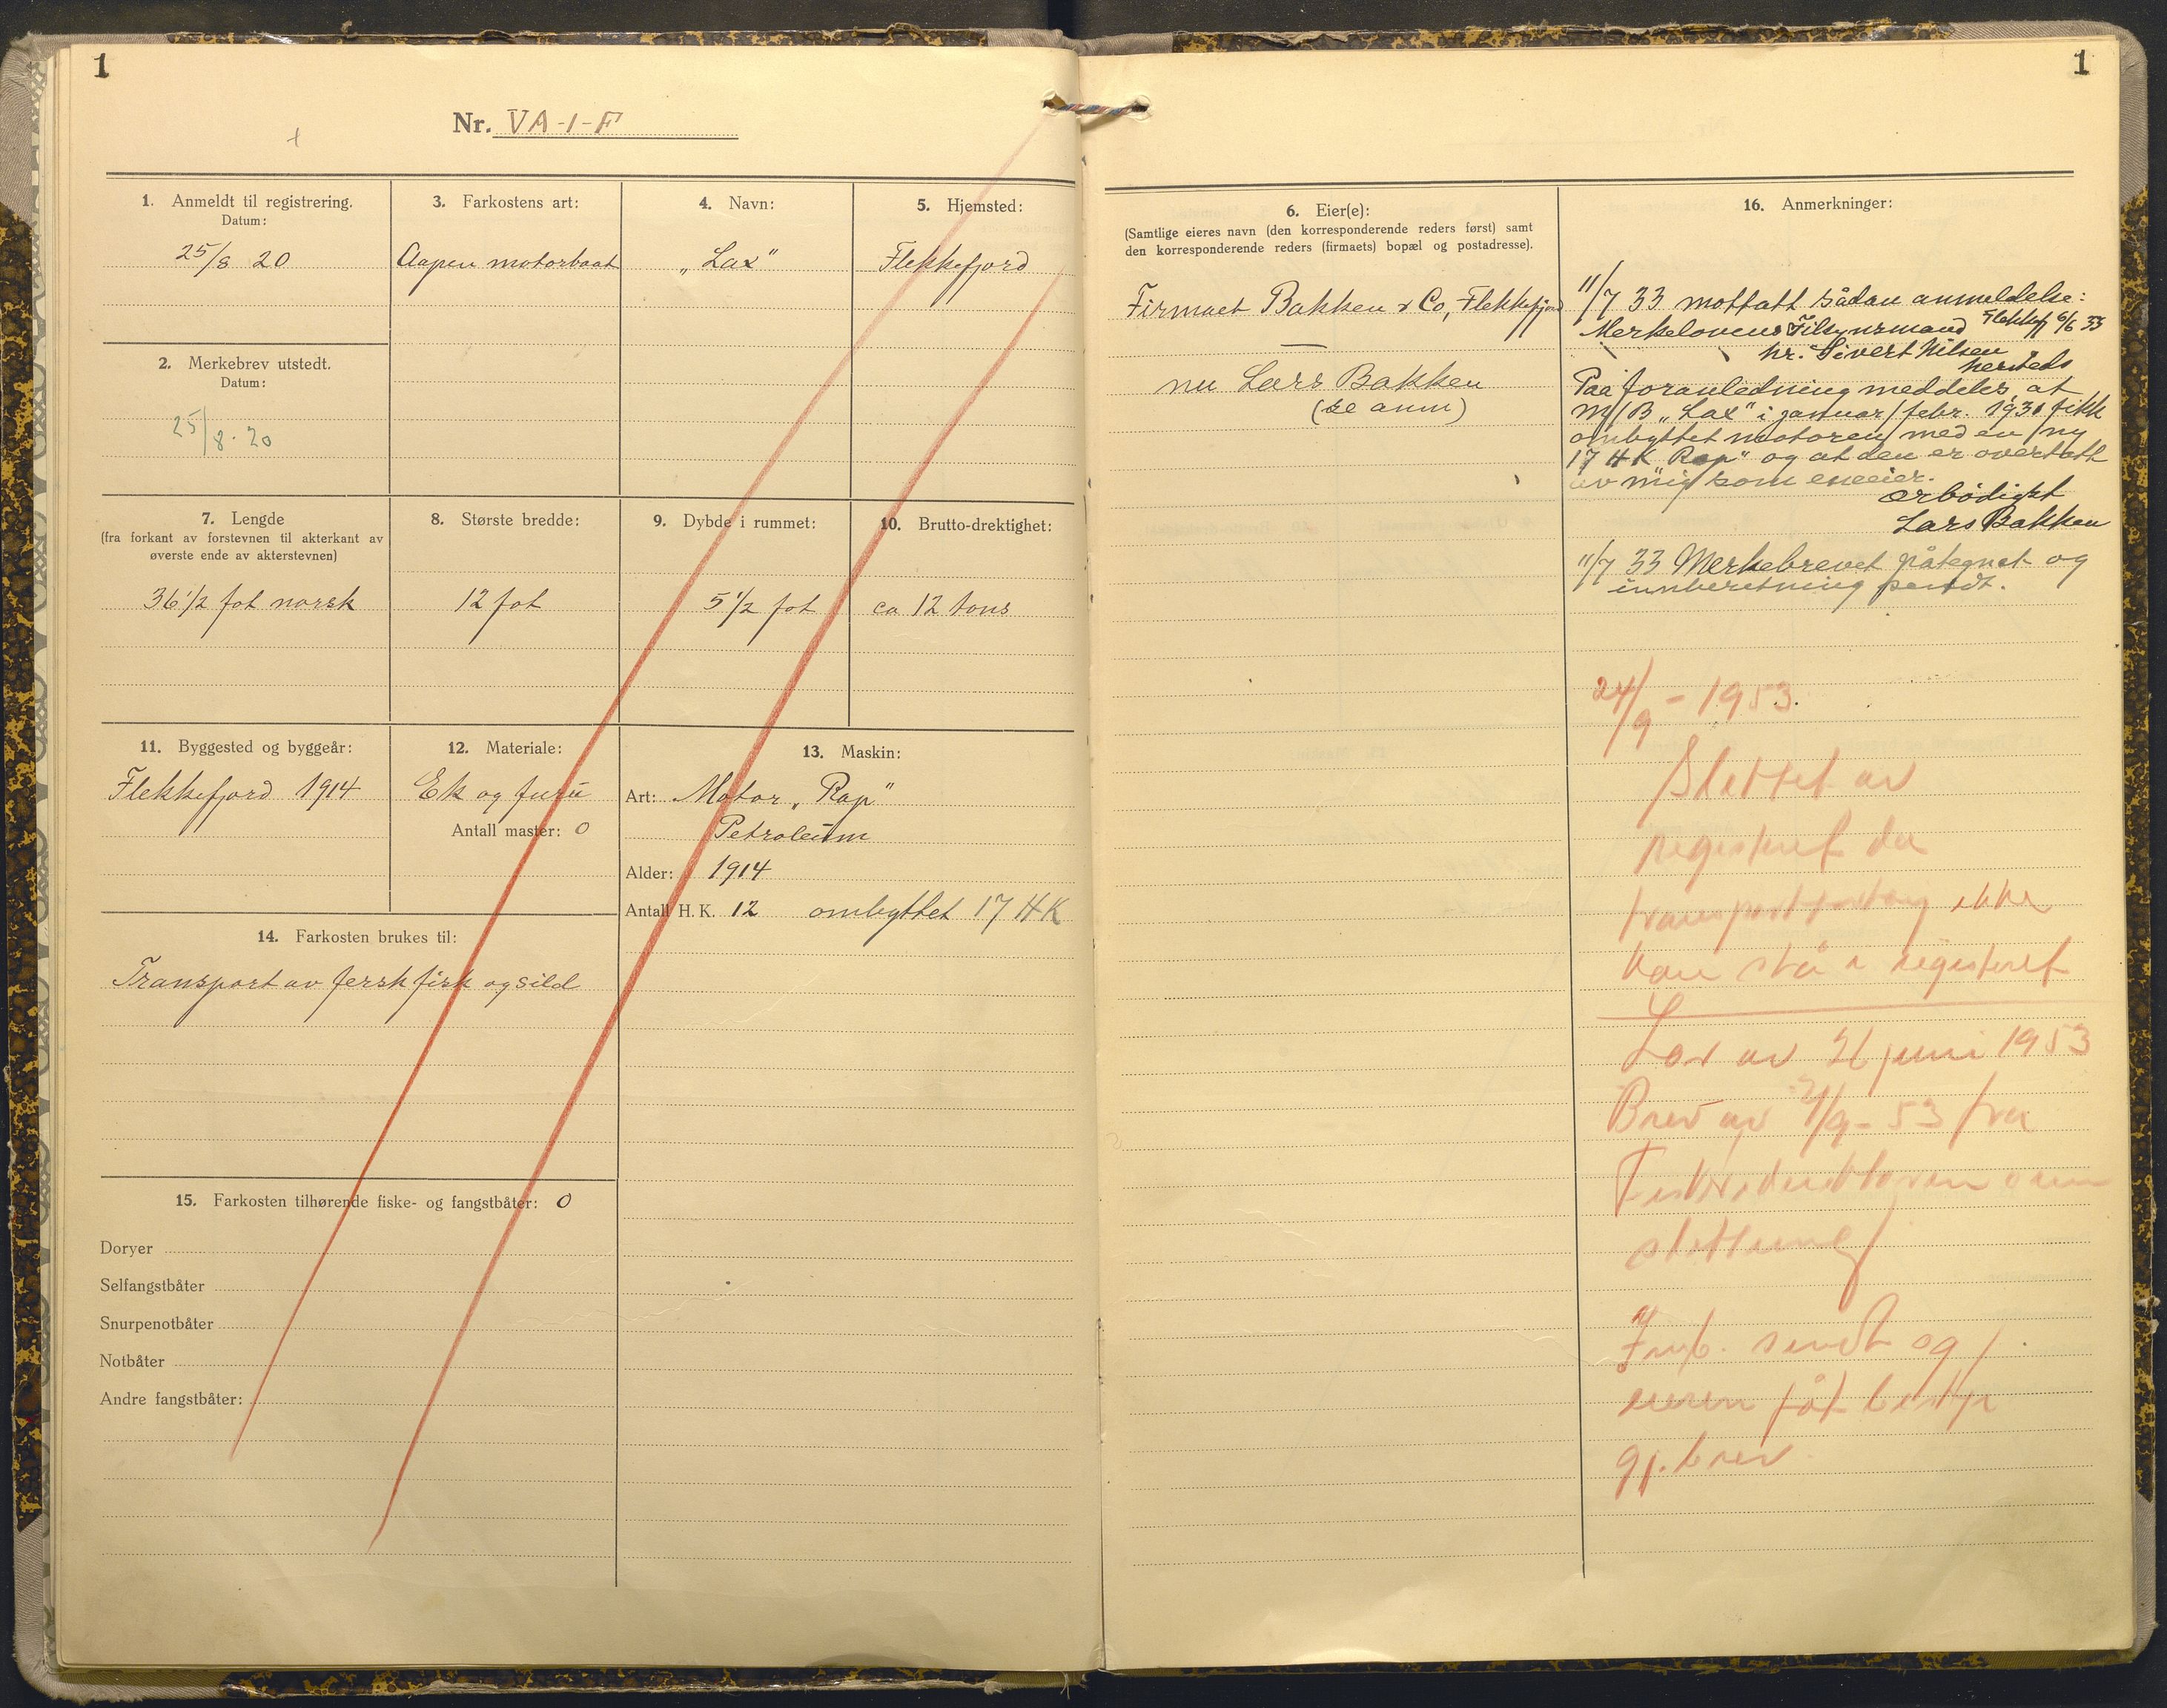 1
Nr. VA-1-F
1. Anmeldt til registrering.
Datum:
25/8 20
2. Merkebrev utstedt.
Datum:
25/8. 20
3. Farkostens art:
Aapen motorbaat
4. Navn:
„Lax"
5. Hjemsted:
Flekkefjord
7. Lengde
(fra forkant av forstevnen til akterkant av
øverste ende av akterstevnen)
36 1/2 fot norsk
8. Største bredde:
12 fot
9. Dybde i rummet:
5 1/2 fot
10. Brutto-drektighet:
ca 12 tons
11. Byggested og byggeår:
Flekkefjord 1914
12. Materiale:
Ek og furu
Antall master: 0
13. Maskin:
Art: Motor „Rap"
Petroleum
Alder: 1914
Antall H. K. 12 ombyttet 17 HK
14. Farkosten brukes til:
Transport av fersk fisk og sild
15. Farkosten tilhørende fiske- og fangstbåter: 0
Doryer
Selfangstbåter
Snurpenotbåter
Notbåter
Andre fangstbåter:
1
6. Eier(e):
(Samtlige eieres navn (den korresponderende reders først) samt
den korresponderende reders (firmaets) bopæl og postadresse).
Firmaet Bakken & Co, Flekkefjord
nu Lars Bakken
(se anm)
16. Anmerkninger:
11/7 33 mottatt sådan anmeldelse:
Merkelovens Tilsynsmand Flekkefj 6/6 33
hr. Sivert Nilsen
hersteds
Paa foranledning meddeles at
M/B „Lax" i januar/febr. 1931 fikk
ombyttet motoren med en ny
17 HK „Rap" og at den er overtatt
av mig som eneeier.
ærbødigst
Lars Bakken
11/7 33 Merkebrevet påtegnet og
innberetning sendt.
24/9 - 1953.
Slettet av
registeret da
transportfartøy ikke
kan stå i registeret
Lov av juni 1953
Brev av /9 - 53 fra
Fiskeridirektøren om
sletting
Innb. sendt og
eieren fåt
gj. brev